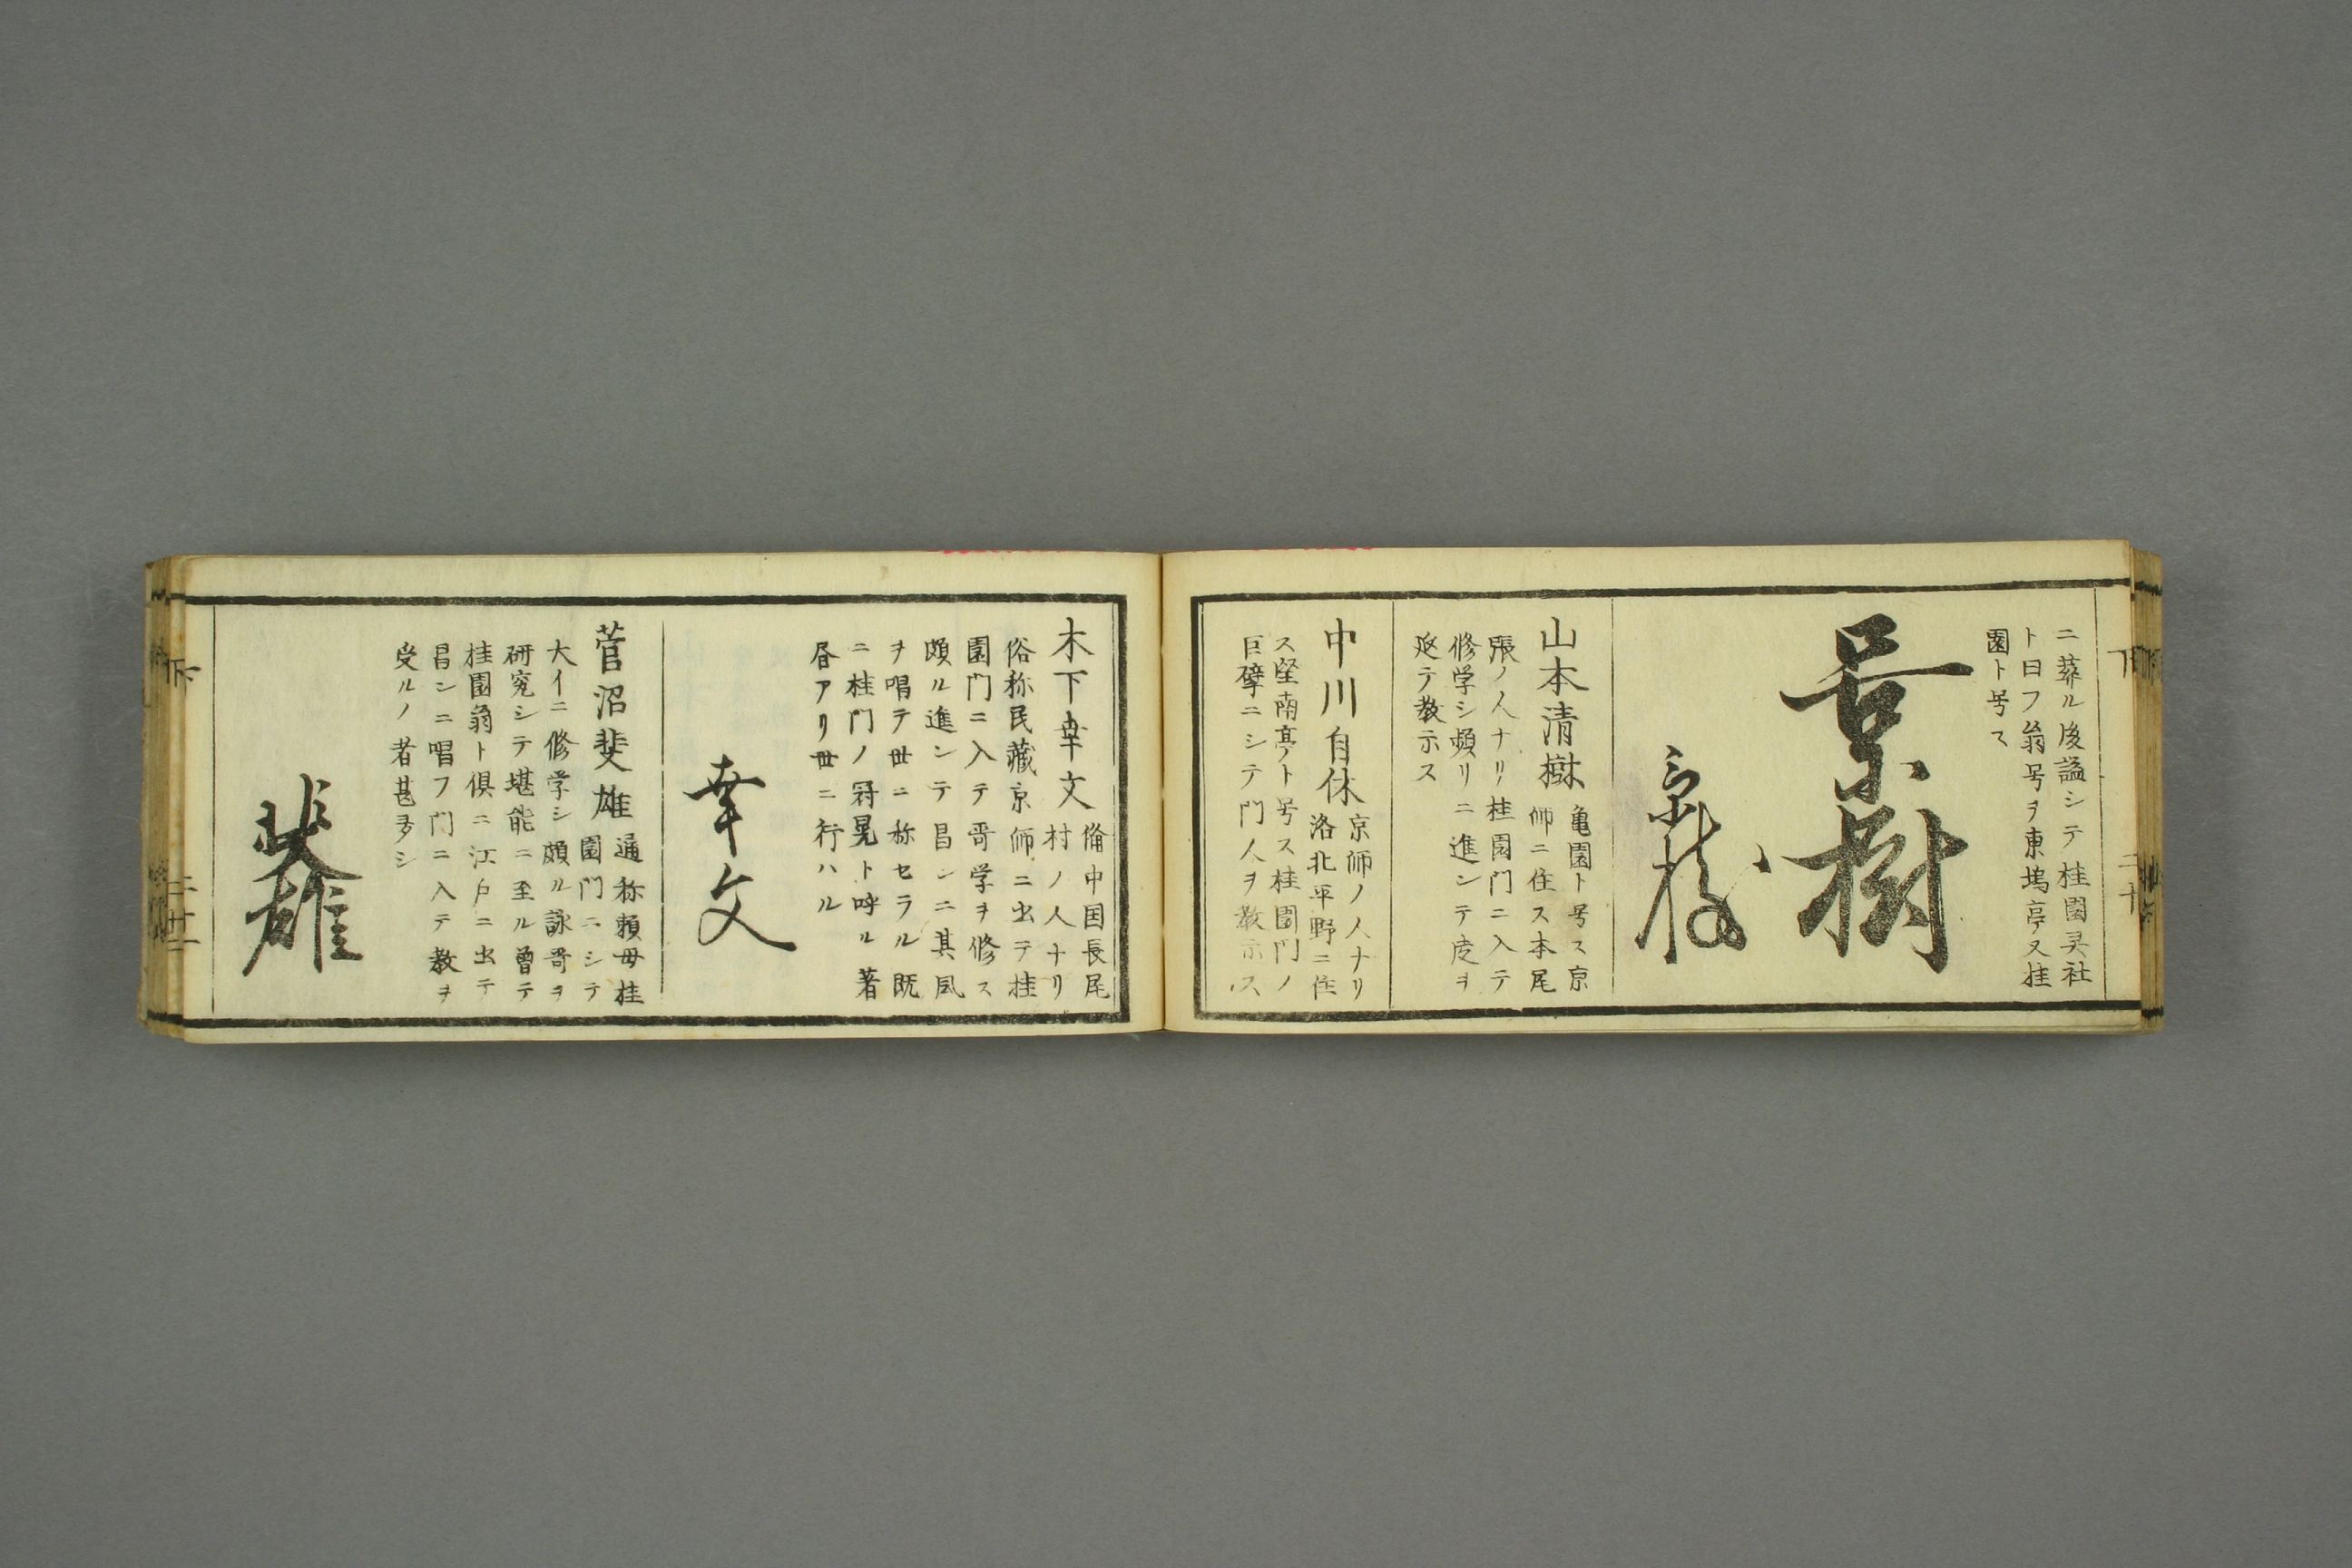 ニ葬ル後謚シテ桂園灵社
ト曰フ翁号ヲ東塢亭又桂
園ト号ス
景樹
山本清樹
亀園ト号ス京
師ニ住ス本尾
張ノ人ナリ桂園門ニ入テ
修学シ頻リニ進ンテ度ヲ
返テ教示ス
中川自休
京師ノ人ナリ
洛北平野ニ住
ス堅南亭ト号ス桂園門ノ
巨擘ニシテ門人ヲ教示ス
下
二十
木下幸文
俻中国長尾
村ノ人ナリ
俗称民藏京師ニ出テ桂
園門ニ入テ哥学ヲ修ス
頗ル進ンテ昌ンニ其風
ヲ唱テ世ニ称セラル既
ニ桂門ノ冠冕ト呼ル著
昏アリ世ニ行ハル
幸文
菅沼斐雄
通称頼母桂
園門ニシテ
大イニ修学シ頗ル詠哥ヲ
研究シテ堪能ニ至ル曽テ
桂園翁ト倶ニ江戸ニ出テ
昌ンニ唱フ門ニ入テ教ヲ
受ルノ者甚多シ
斐雄
下
二十一